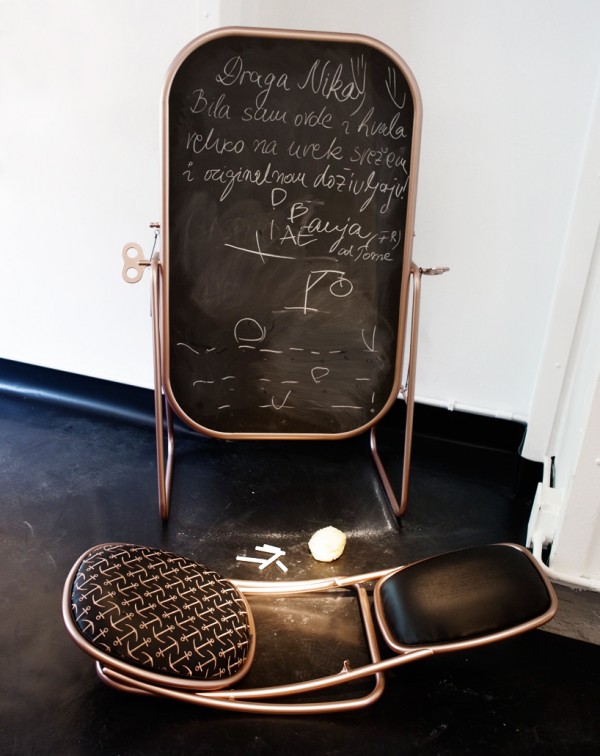 Draga Nika,
Bila sam ovde i hvala
veliko na uvek svežem
i originalnom doživljaju!
D
B
! AE
anja (FR)
od Tome